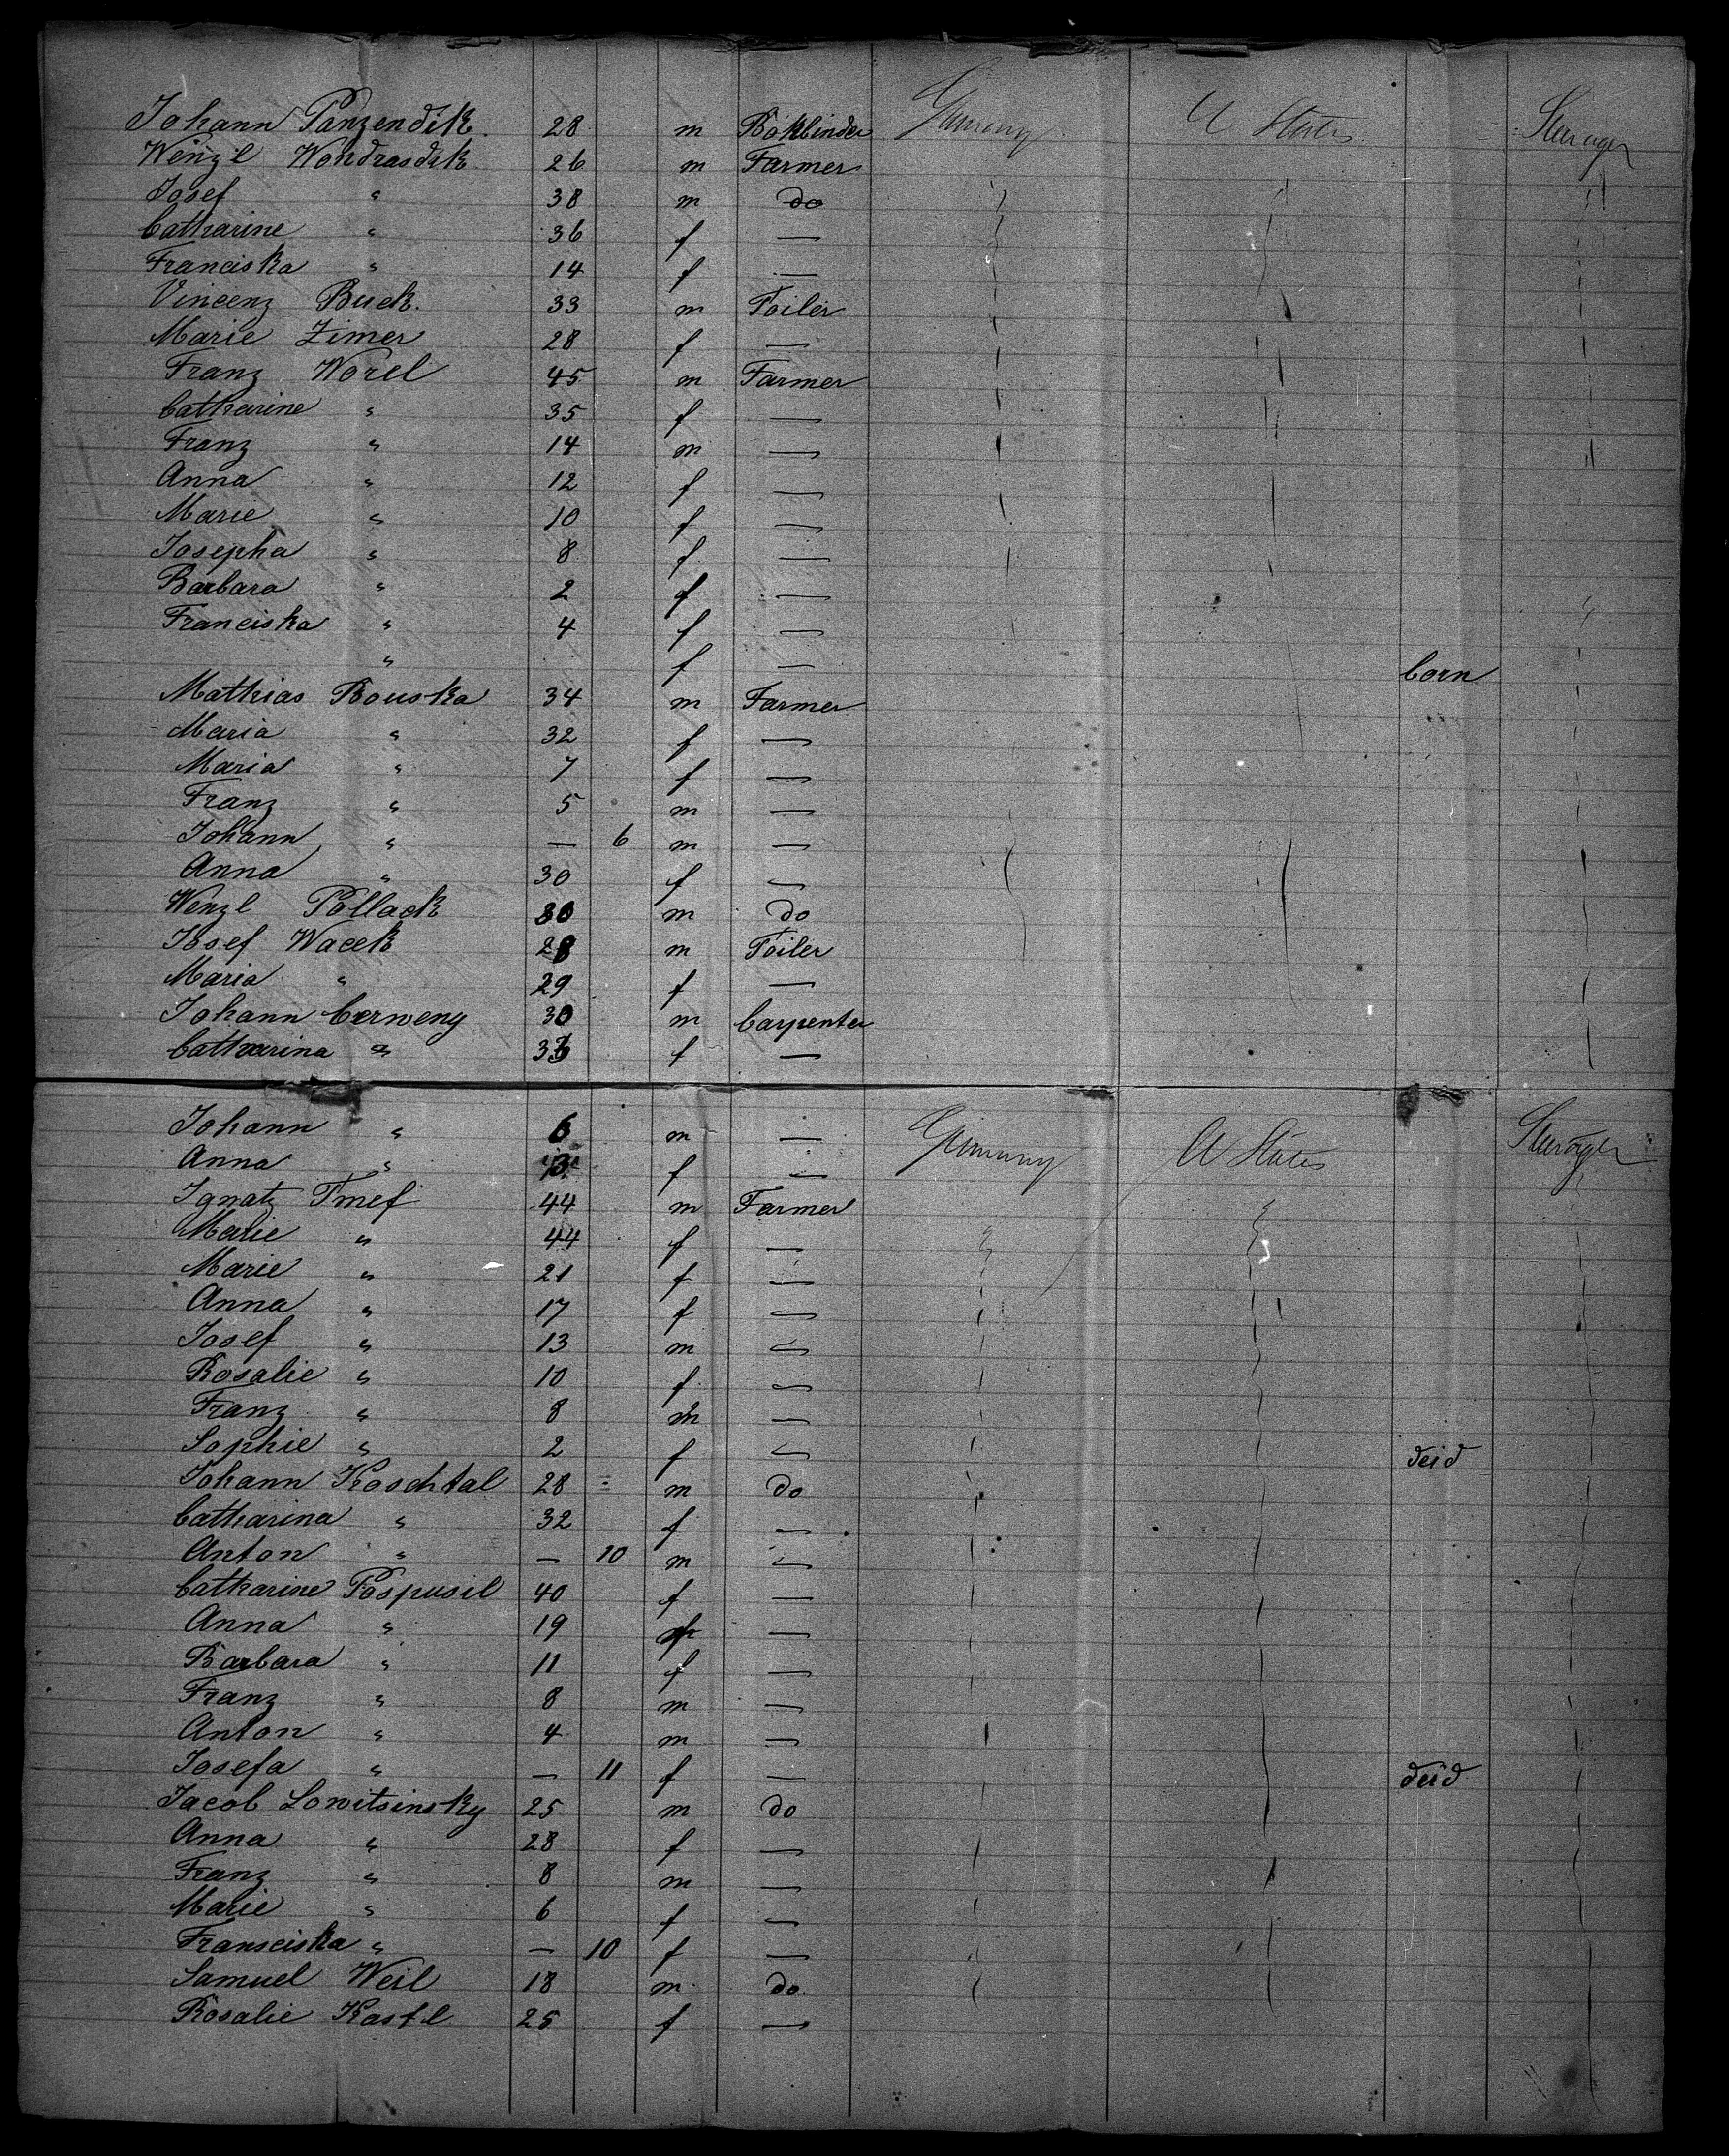 Johann Panzendik. 28 m Bokbinder Germany U States Steerage
Wenzl Wondrasdik 26 m Farmer
Josef " 38 m do
Catharine " 36 f —
Franciska " 14 f —
Vincenz Buck. 33 m Toiler
Marie Zimer 28 f —
Franz Worel 45 m Farmer
Catharine " 35 f —
Franz " 14 m —
Anna " 12 f —
Marie " 10 f —
Josepha " 8 f —
Barbara " 2 f —
Franciska " 4 f —
" f — born
Mathias Bouska 34 m Farmer
Maria " 32 f —
Maria " 7 f —
Franz " 5 m —
Johann " — 6 m —
Anna " 30 f —
Wenzl Pollack 30 m do
Josef Wacek 28 m Toiler
Maria " 29 f —
Johann Cerweny 30 m Carpenter
Catharina " 33 f —
Johann " 6 m — Germany U States Steerage
Anna " 3 f —
Ignatz Tmef 44 m Farmer
Marie " 44 f —
Marie " 21 f —
Anna " 17 f —
Josef " 13 m —
Rosalie " 10 f —
Franz " 8 m —
Sophie " 2 f — deid
Johann Koschtal 28 m do
Catharina " 32 f —
Anton " — 10 m —
Catharine Pospusil 40 f —
Anna " 19 f —
Barbara " 11 f —
Franz " 8 m —
Anton " 4 m —
Josefa " — 11 f — deid
Jacob Lowitsinsky 25 m do
Anna " 28 f —
Franz " 8 m —
Marie " 6 f —
Franseiska " — 10 f —
Samuel Weil 18 m do
Rosalie Kastl 25 f —